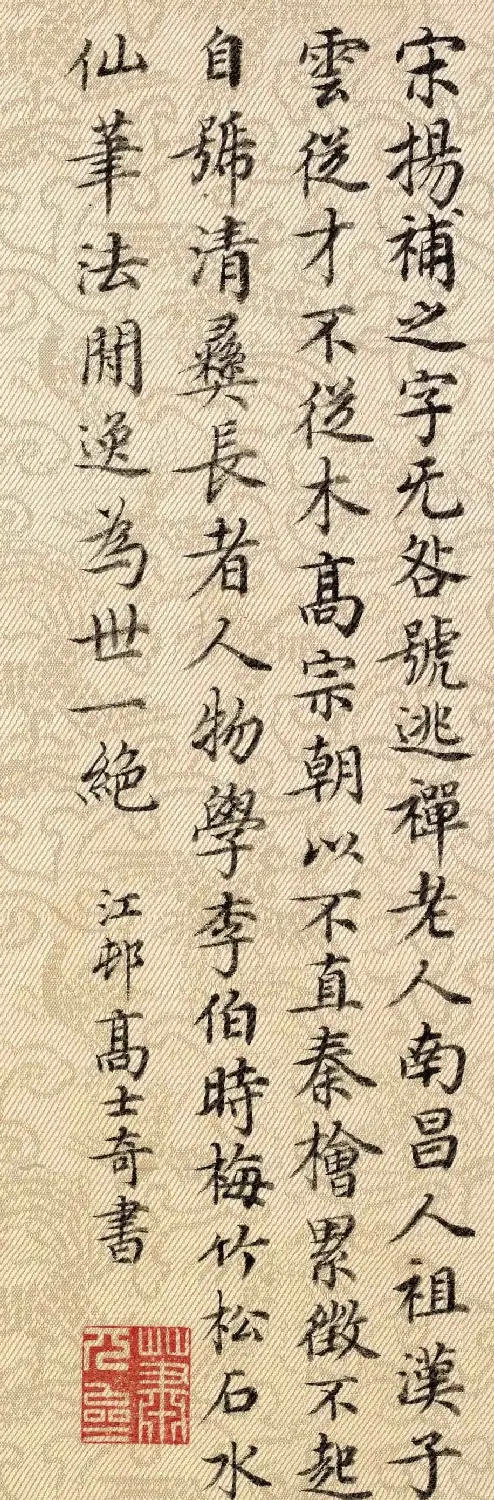 宋揚補之字无咎號逃禪老人南昌人祖漢子
雲從才不從木高宗朝以不直秦檜累徵不起
自號清彝長者人物學李伯時梅竹松石水
仙筆法閒逸為世一絕
江邨高士奇書